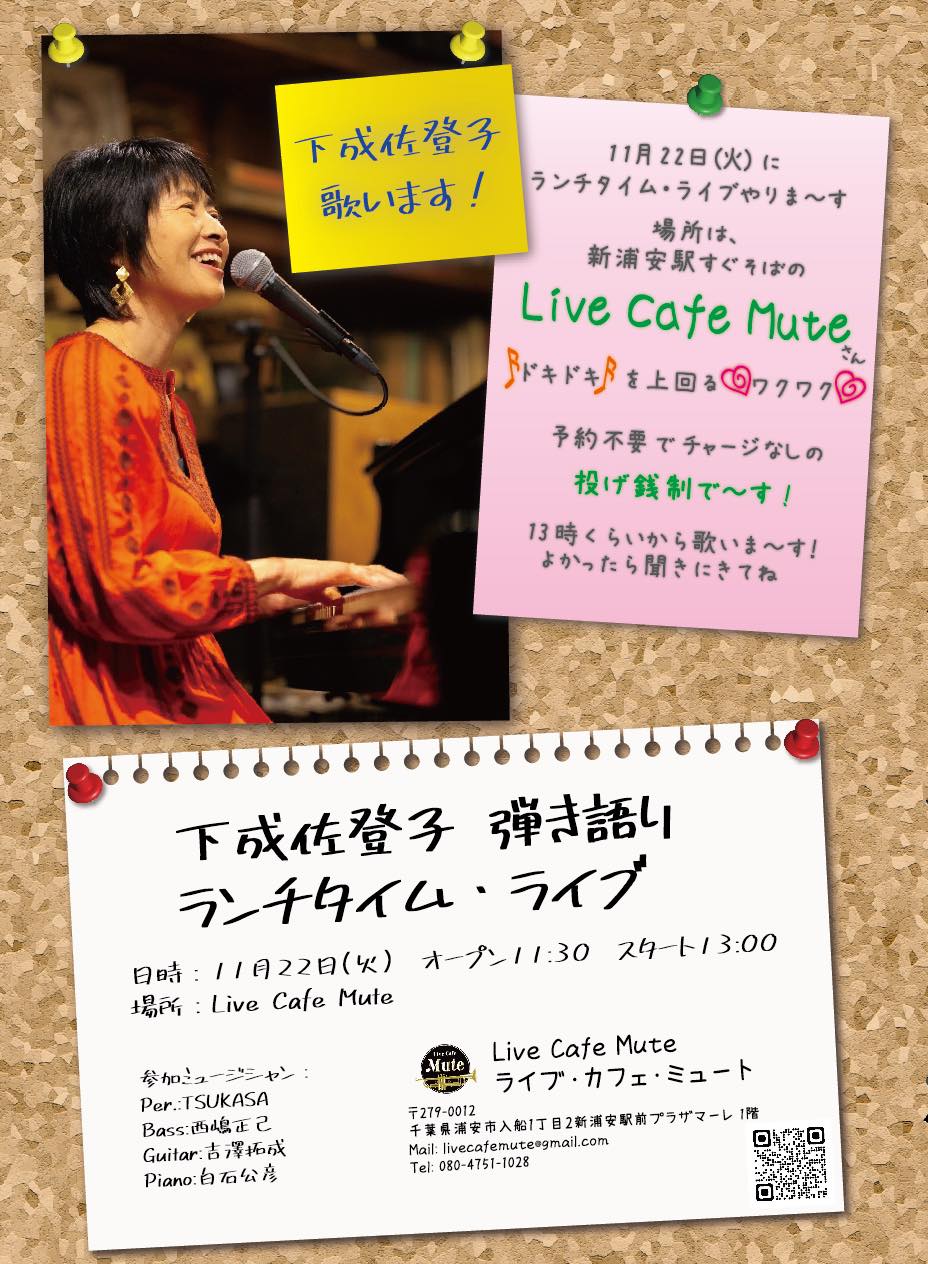 下成佐登子
歌います！
11月22日(火)に
ランチタイム・ライブやりま〜す
場所は、
新浦安駅すぐそばの
Live Cafe Mute
さん
ドキドキ を上回る ワクワク
予約不要でチャージなしの
投げ銭制で〜す！
13時くらいから歌いま〜す!
よかったら聞きにきてね
下成佐登子 弾き語り
ランチタイム・ライブ
日時：11月22日(火) オープン11:30 スタート13:00
場所：Live Cafe Mute
参加ミュージシャン：
Per.:TSUKASA
Bass:西嶋正己
Guitar:吉澤拓成
Piano:白石公彦
Live Cafe
Mute
Live Cafe Mute
ライブ・カフェ・ミュート
〒279-0012
千葉県浦安市入船1丁目2新浦安駅前プラザマーレ 1階
Mail: livecafemute@gmail.com
Tel: 080-4751-1028